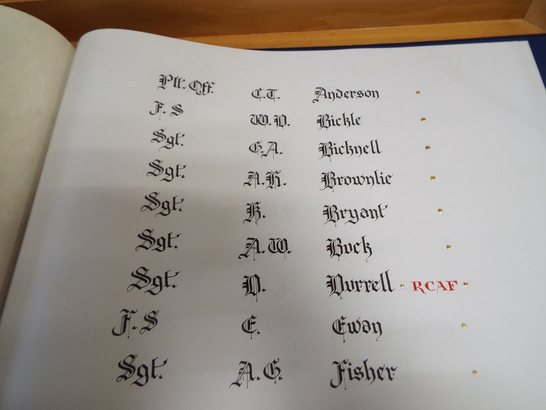 Plt: Off. C.T. Anderson
F. S W.D. Bickle
Sgt: G.A. Bicknell
Sgt: A.H. Brownlie
Sgt: H. Bryant
Sgt: A.W. Buck
Sgt: D. Durrell · RCAF
F. S E. Ewan
Sgt: A.G. Fisher